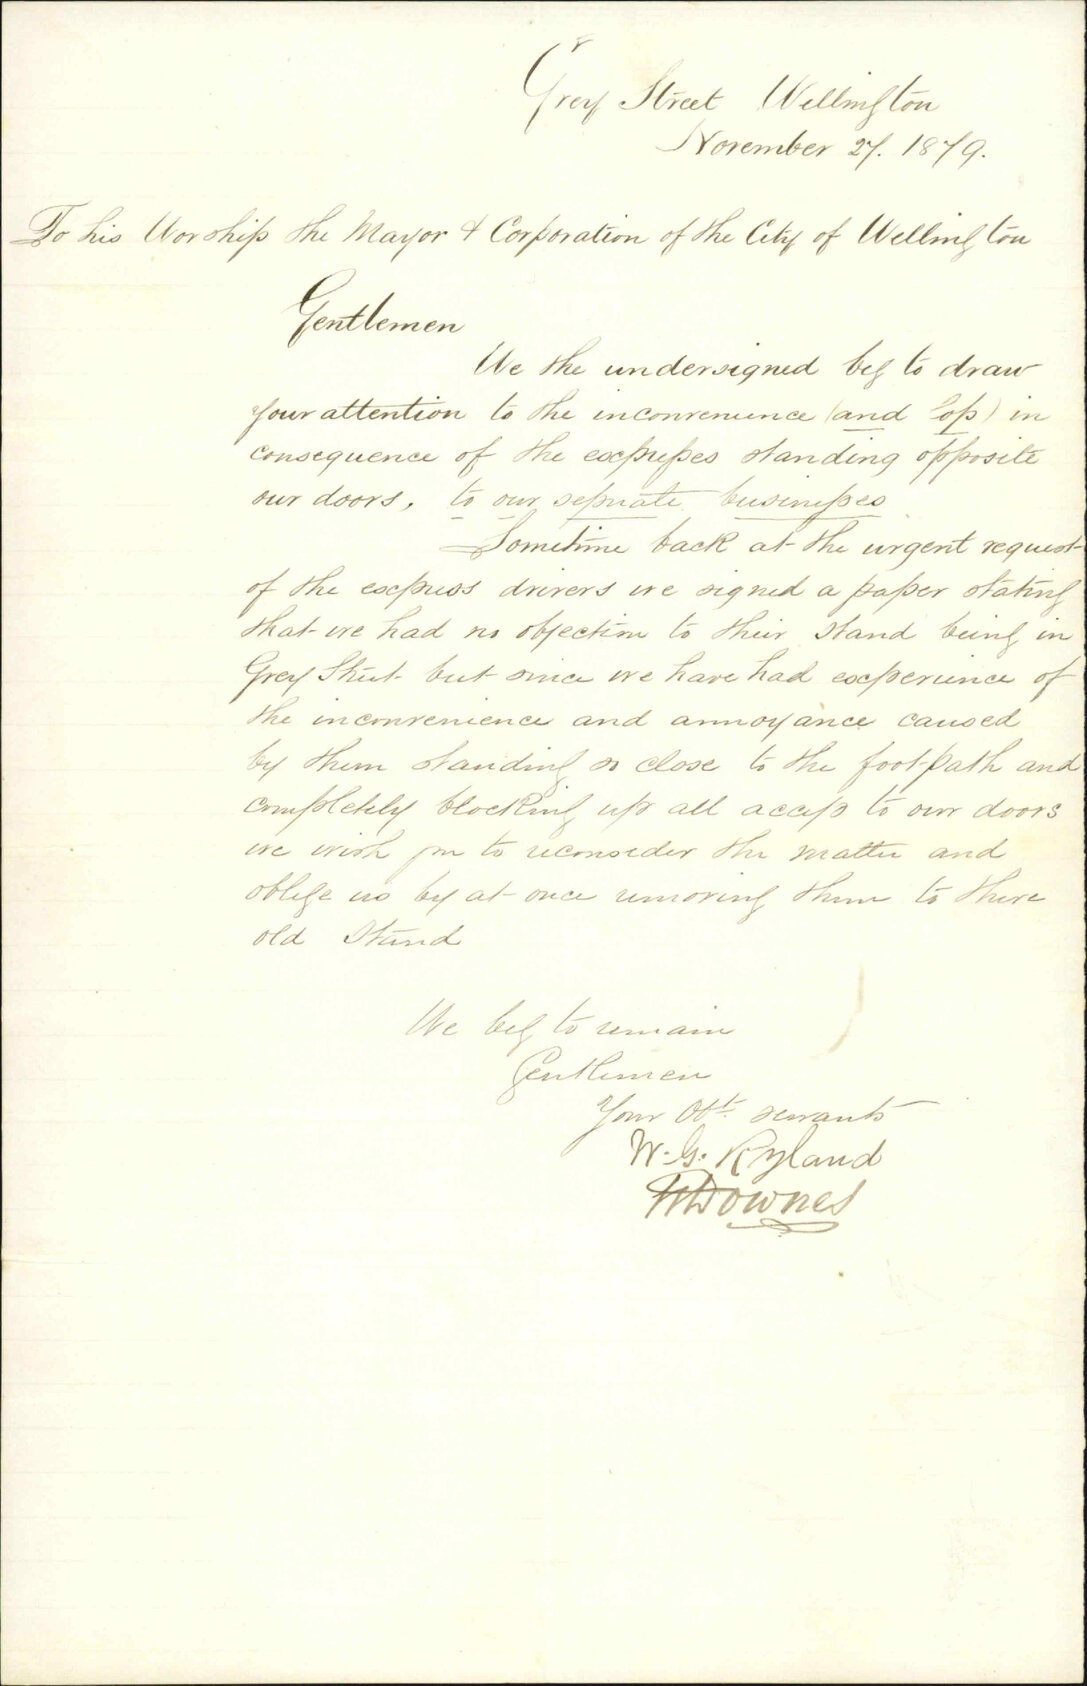 Grey Street Wellington
November 27. 1879.
To his Worship the Mayor & Corporation of the City of Wellington
Gentlemen
We the undersigned beg to draw
your attention to the inconvenience (and loss) in
consequence of the expresses standing opposite
our doors, to our sepnate businesses
Sometime back at the urgent request
of the express drivers we signed a paper stating
that we had no objection to their stand being in
Grey Street but since we have had experience of
the inconvenience and annoyance caused
by them standing so close to the foot-path and
completely blocking up all access to our doors
we wish you to reconsider the matter and
oblige us by at once removing them to there
old stand
We beg to remain
Gentlemen
Your Obt. servants
W. G. Ryland
Downes